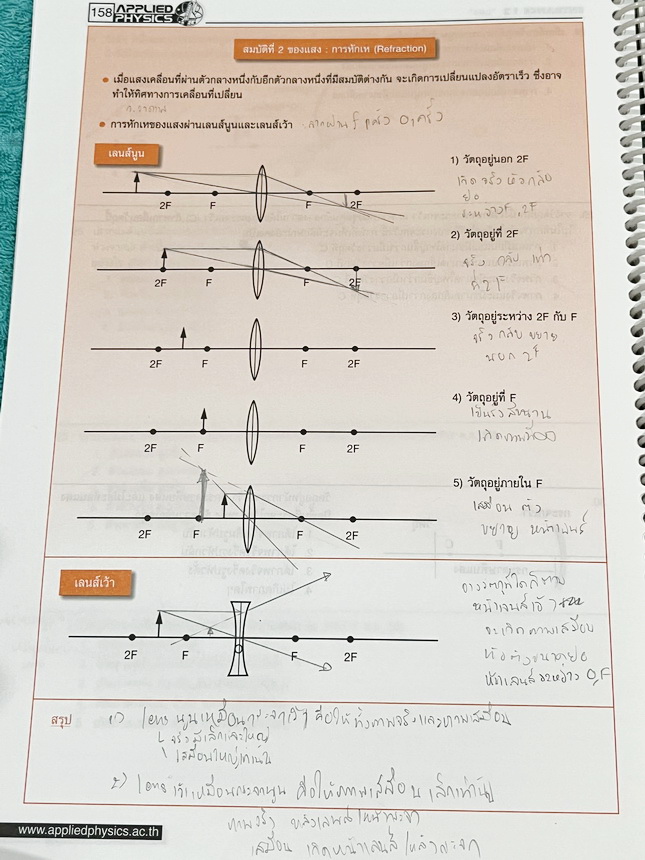 158 APPLIED PHYSICS
สมบัติที่ 2 ของแสง : การหักเห (Refraction)
• เมื่อแสงเคลื่อนที่ผ่านตัวกลางหนึ่งกับอีกตัวกลางหนึ่งที่มีสมบัติต่างกัน จะเกิดการเปลี่ยนแปลงอัตราเร็ว ซึ่งอาจ
ทำให้ทิศทางการเคลื่อนที่เปลี่ยน
• การหักเหของแสงผ่านเลนส์นูนและเลนส์เว้า
เลนส์นูน
1) วัตถุอยู่นอก 2F
เกิดจริง หัวกลับ
ย่อ
ระหว่าง F, 2F
2F F F 2F
2) วัตถุอยู่ที่ 2F
จริง กลับ เท่า
ที่ 2F
2F F F 2F
3) วัตถุอยู่ระหว่าง 2F กับ F
จริง กลับ ขยาย
นอก 2F
2F F F 2F
4) วัตถุอยู่ที่ F
เป็นรังสีขนาน
เกิดภาพที่ ∞
2F F F 2F
5) วัตถุอยู่ภายใน F
เสมือน ตั้ง
ขยาย หน้าเลนส์
2F F F 2F
เลนส์เว้า
วางวัตถุที่ใดก็ตาม
หน้าเลนส์เว้า
จะเกิดภาพเสมือน
หัวตั้งขนาดย่อ
หน้าเลนส์ระหว่าง O, F
2F F O F 2F
สรุป 1) เลนส์นูนเหมือนกระจกเว้า คือให้ทั้งภาพจริงและภาพเสมือน
จริงมีเล็กและใหญ่
เสมือนใหญ่เท่านั้น
2) เลนส์เว้าเหมือนกระจกนูน คือให้ภาพเสมือน เล็กเท่านั้น
ภาพจริง หลังเลนส์/หน้ากระจก
เสมือน เกิดหน้าเลนส์/หลังกระจก
www.appliedphysics.ac.th